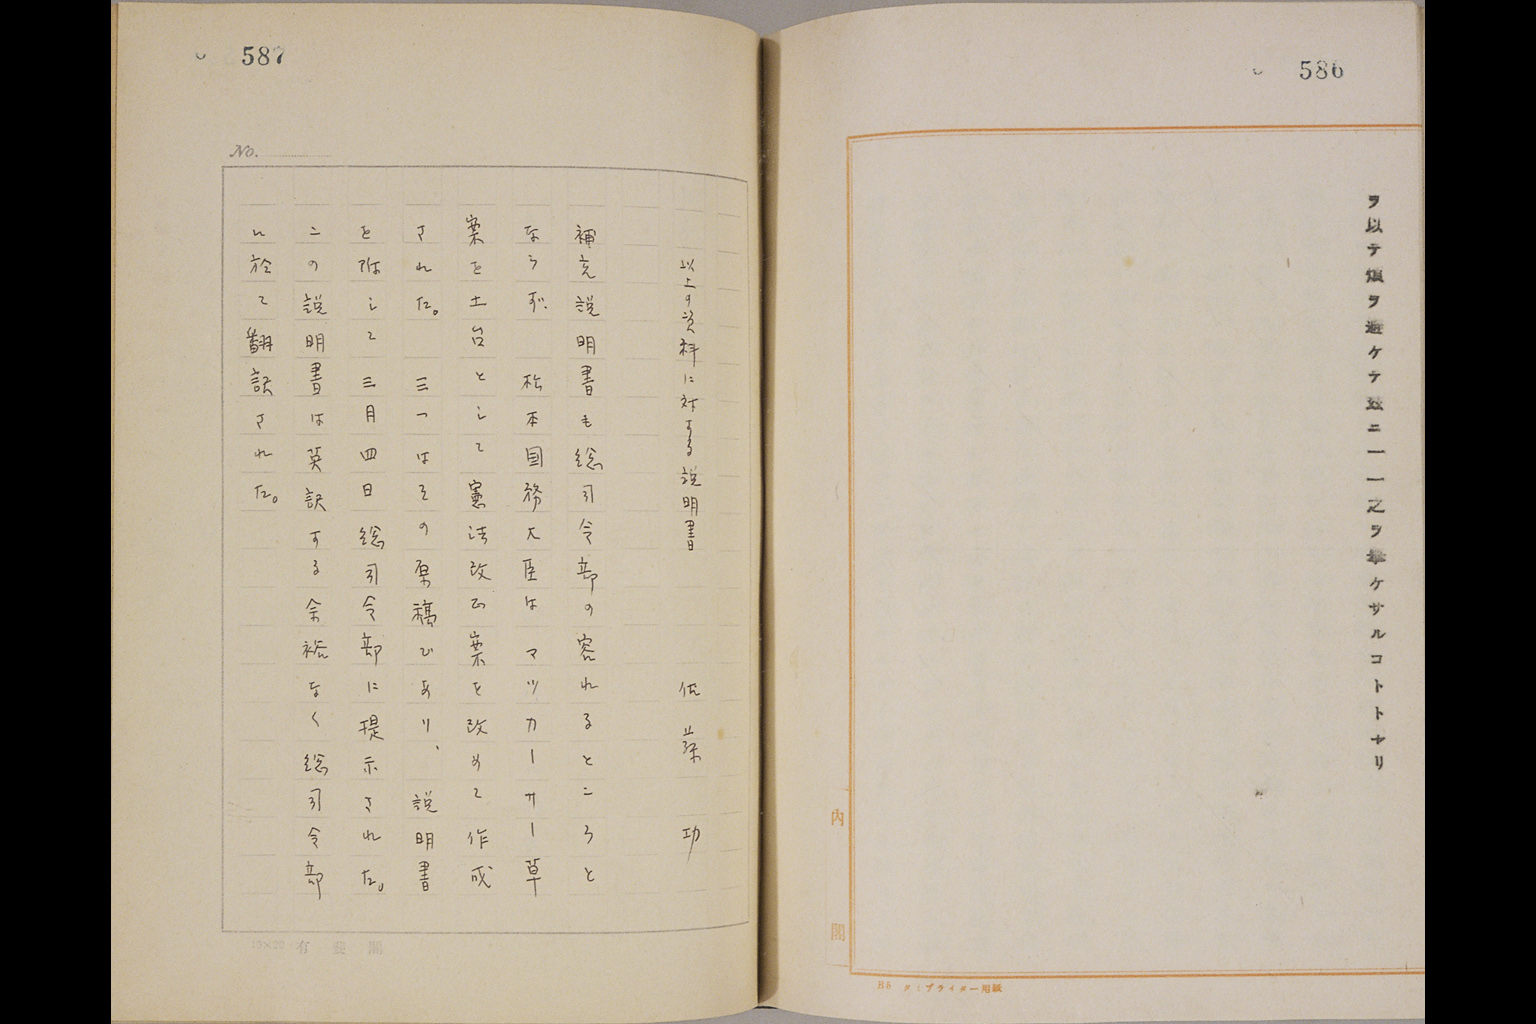 586
ヲ以テ煩ヲ避ケテ玆ニ一一之ヲ挙ケサルコトトナリ
内閣
B5 タイプライター用紙
587
No.
以上の資料に対する説明書 佐藤 功
補充説明書も総司令部の容れるところと
ならず、松本国務大臣はマツカーサー草
案を土台として憲法改正案を改めて作成
された。三一はその原稿であり、説明書
を附して三月四日総司令部に提示された。
この説明書は英訳する余裕なく総司令部
に於て翻訳された。
有斐閣